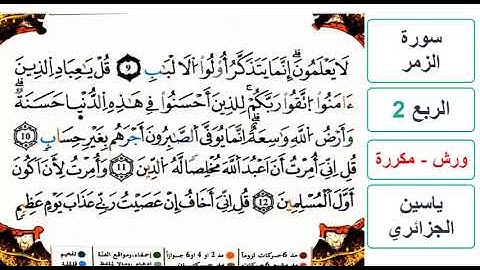 لَا يَعْلَمُونَ إِنَّمَا يَتَذَكَّرُ أُولُوا الَالْبَبِ 9 قُلْ يَٰعِبَادِ الذِينَ
ءَامَنُوا اتَّقُوا رَبَّكُمْ لِلذِينَ أَحْسَنُوا فِي هَٰذِهِ الدُّنْيَا حَسَنَةٌ
وَأَرْضُ اللَّهِ وَاسِعَةٌ إِنَّمَا يُوَفَّى الصَّٰبِرُونَ أَجْرَهُم بِغَيْرِ حِسَابٍ 10
قُلِ اِنِّيَ أُمِرْتُ أَنَ اَعْبُدَ اللَّهَ مُخْلِصًا لَّهُ الدِّينَ 11 وَأُمِرْتُ لِأَنَ اَكُونَ
أَوَّلَ الْمُسْلِمِينَ 12 قُلِ اِنِّيَ أَخَافُ إِنْ عَصَيْتُ رَبِّي عَذَابَ يَوْمٍ عَظِيمٍ
سورة
الزمر
الربع 2
ورش - مكررة
ياسين
الجزائري
مد 6 حركات لزوماً
مد 2 او 4 او 6 جوازاً
إخفاء، ومواقع الغنة
تفخيم